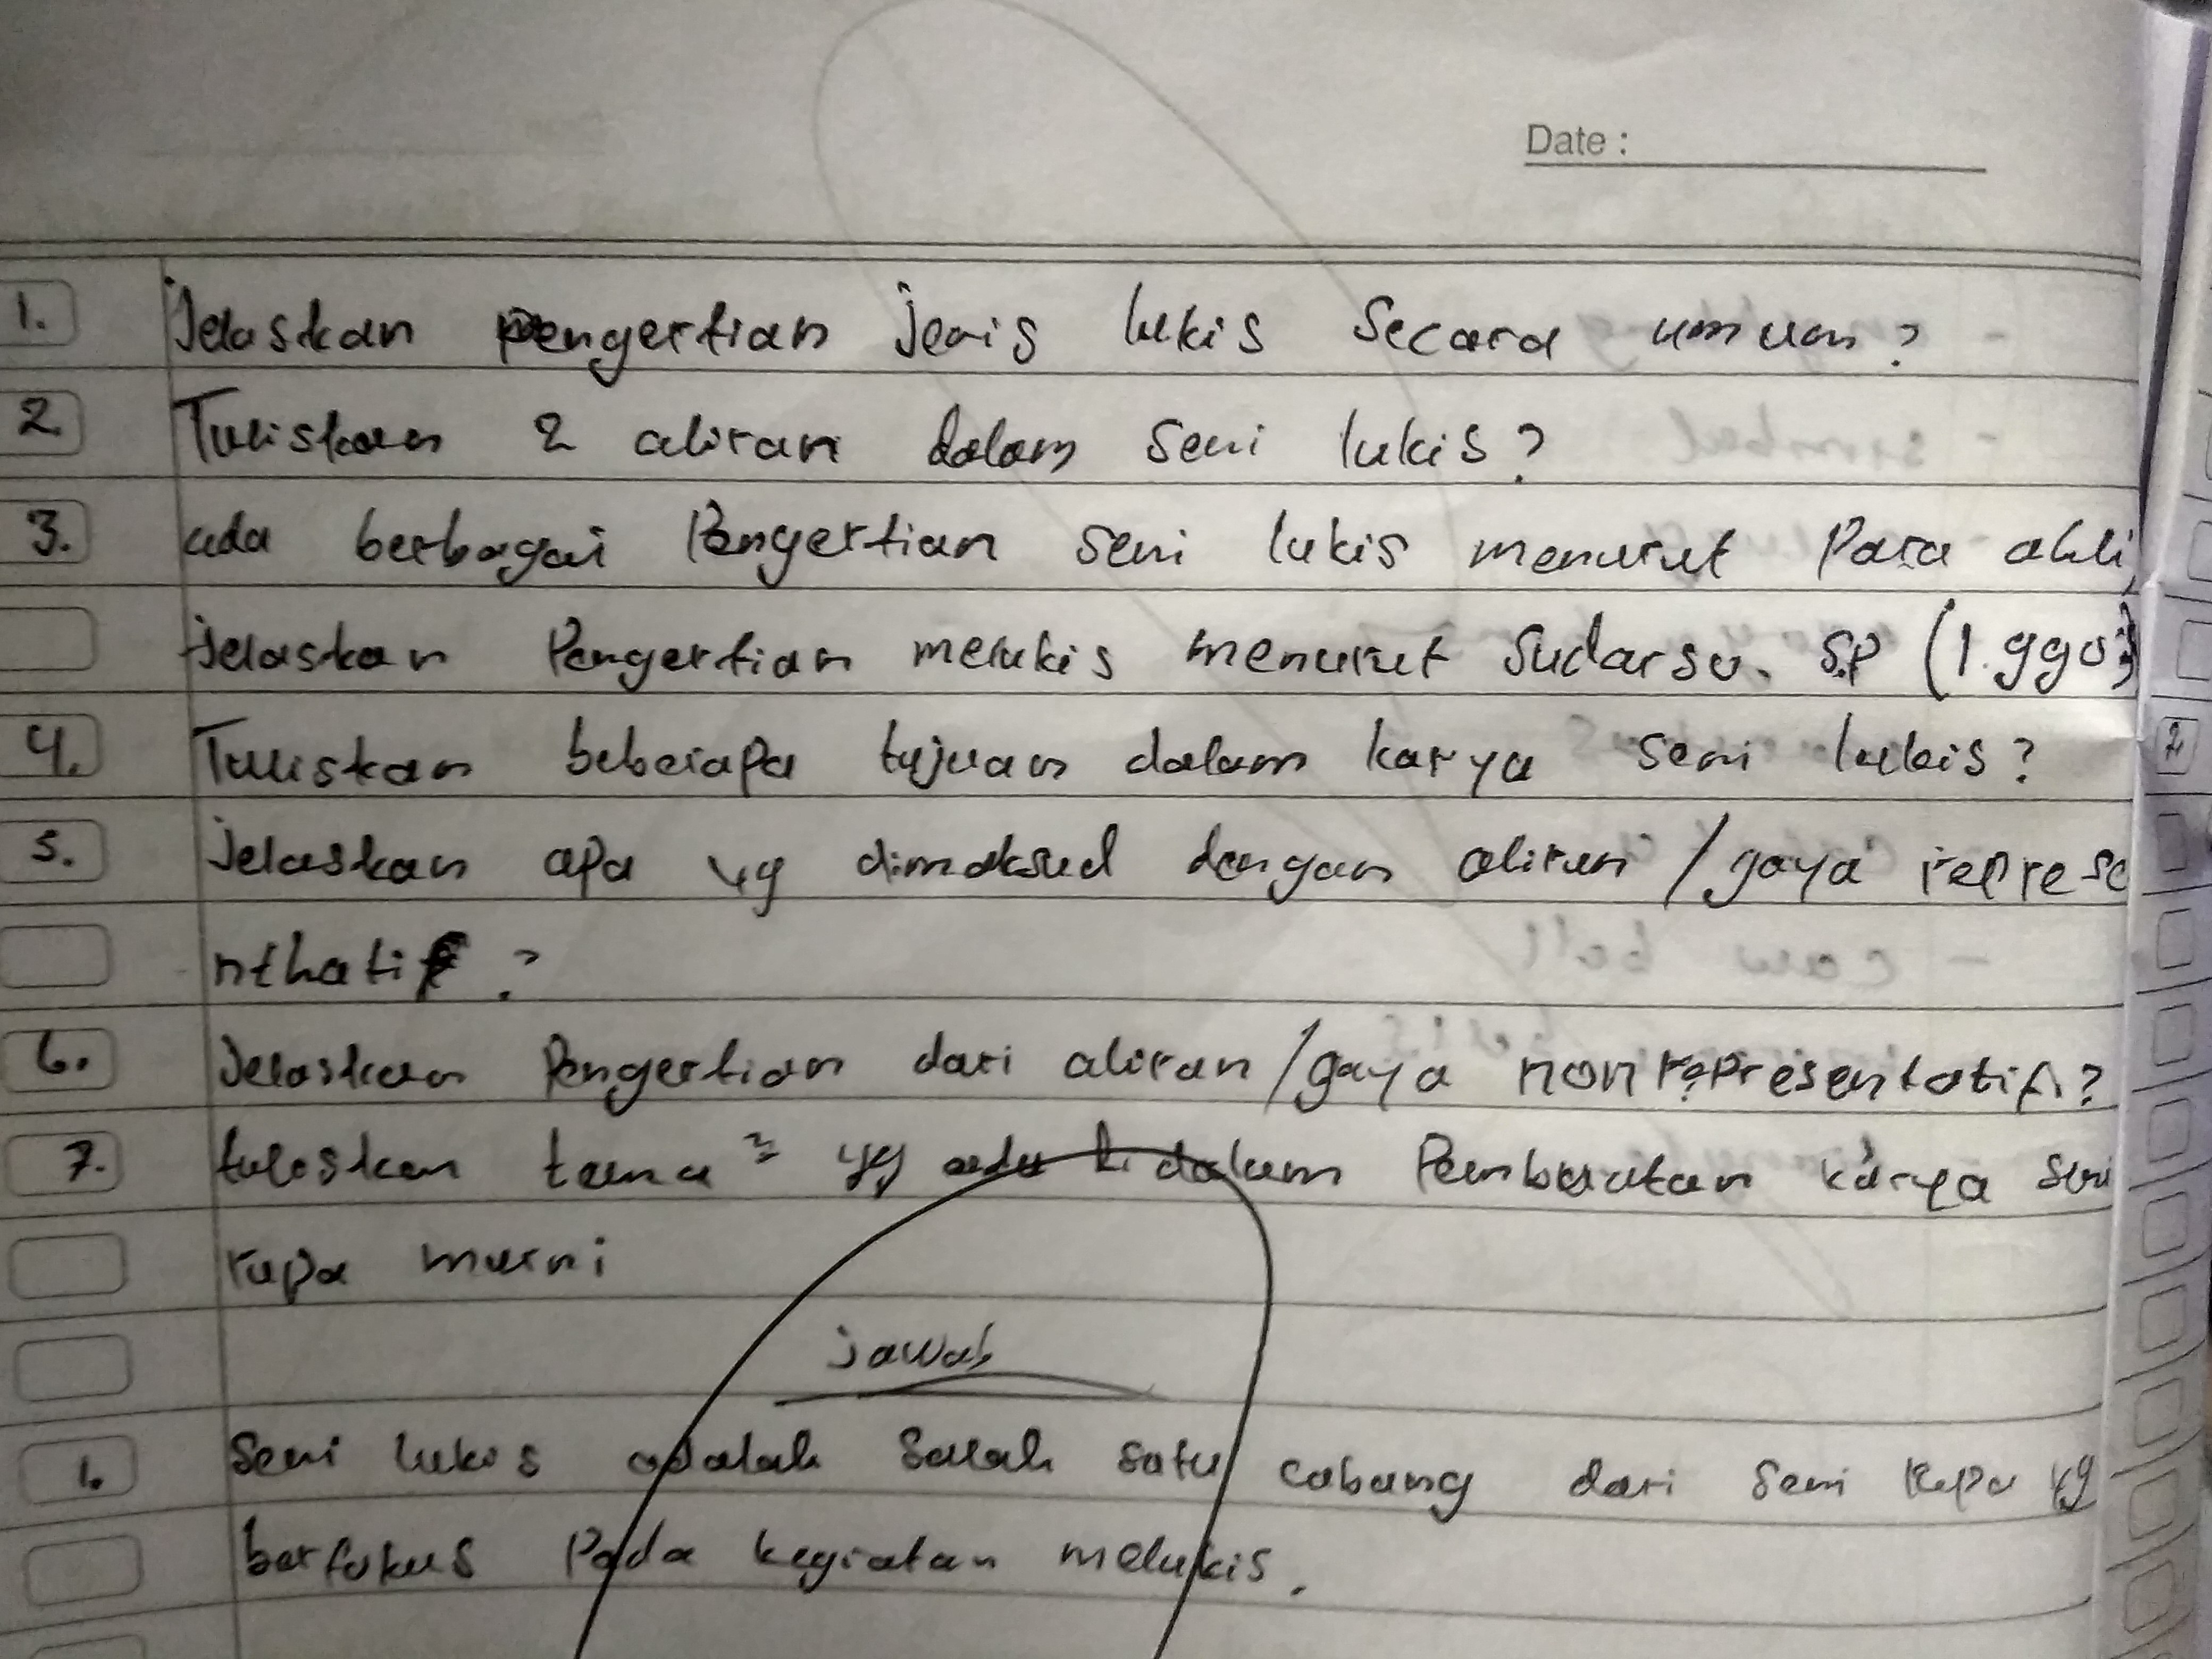 Date :
1. Jelaskan pengertian jenis lukis secara umum?
2 Tuliskan 2 aliran dalam seni lukis?
3. ada berbagai Pengertian seni lukis menurut Para ahli,
Jelaskan Pengertian melukis menurut Sudarso. S.P (1.990)
4. Tuliskan beberapa tujuan dalam karya seni lukis?
5. Jelaskan apa yg dimaksud dengan aliran / gaya represe
nthatif ?
6. Jelaskan Pengertian dari aliran / gaya nonrepresentatif?
7. tuliskan tema² yg ada di dalam Pembuatan karya seni
rupa murni
jawab
1. Seni lukis adalah salah satu cabang dari seni Rupa yg
berfokus Pada kegiatan melukis.
2